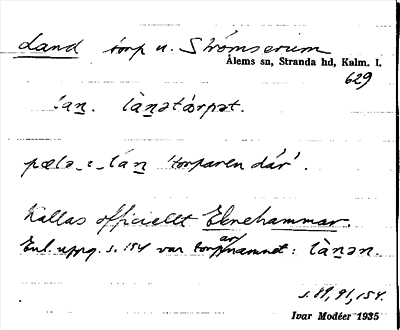 Land torp u. Strömserum
Ålems sn, Stranda hd, Kalm. l.
629
lan. lànətɔrpət.
pælə i lan 'torparen där'.
kallas officiellt Eknehammar.
Enl. uppg. s. 154 var torparnamnet: lànən.
s. 89, 91, 154.
Ivar Modéer 1935